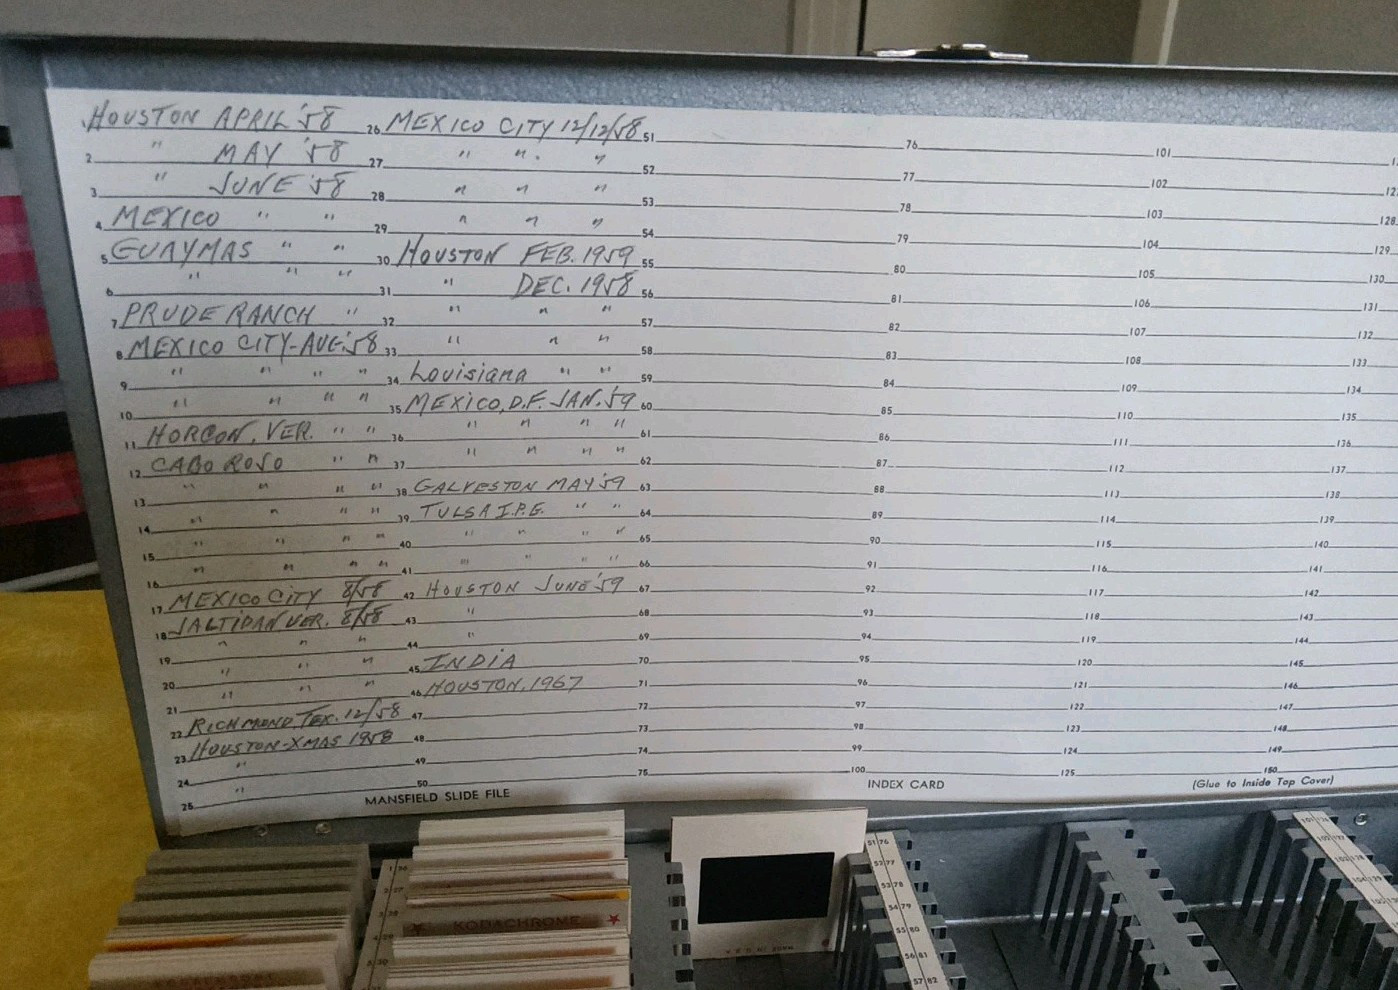 1 HOUSTON APRIL '58
2 " MAY '58
3 " JUNE '58
4 MEXICO " "
5 GUAYMAS " "
6 " " "
7 PRUDE RANCH "
8 MEXICO CITY-AUG. '58
9 " " " "
10 " " " "
11 HORCON, VER. " "
12 CABO ROJO " "
13 " " " "
14 " " " "
15 " " " "
16 " " " "
17 MEXICO CITY 8/58
18 JALTIPAN VER. 8/58
19 " " "
20 " " "
21 " " "
22 RICHMOND, TEX. 12/58
23 HOUSTON-XMAS 1958
24 "
25 "
26 MEXICO CITY 12/12/58
27 " " "
28 " " "
29 " " "
30 HOUSTON FEB. 1959
31 " DEC. 1958
32 " " "
33 " " "
34 Louisiana " "
35 MEXICO, D.F. JAN. '59
36 " " " "
37 " " " "
38 GALVESTON MAY '59
39 TULSA I.P.E. " "
40 " " "
41 " " " "
42 HOUSTON JUNE '59
43 "
44 "
45 INDIA
46 HOUSTON, 1967
47
48
49
50
51
52
53
54
55
56
57
58
59
60
61
62
63
64
65
66
67
68
69
70
71
72
73
74
75
76
77
78
79
80
81
82
83
84
85
86
87
88
89
90
91
92
93
94
95
96
97
98
99
100
101
102
103
104
105
106
107
108
109
110
111
112
113
114
115
116
117
118
119
120
121
122
123
124
125
128
129
130
131
132
133
134
135
136
137
138
139
140
141
142
143
144
145
146
147
148
149
150
MANSFIELD SLIDE FILE
INDEX CARD
(Glue to Inside Top Cover)
KODACHROME
51 76
52 77
53 78
54 79
55 80
56 81
57 82